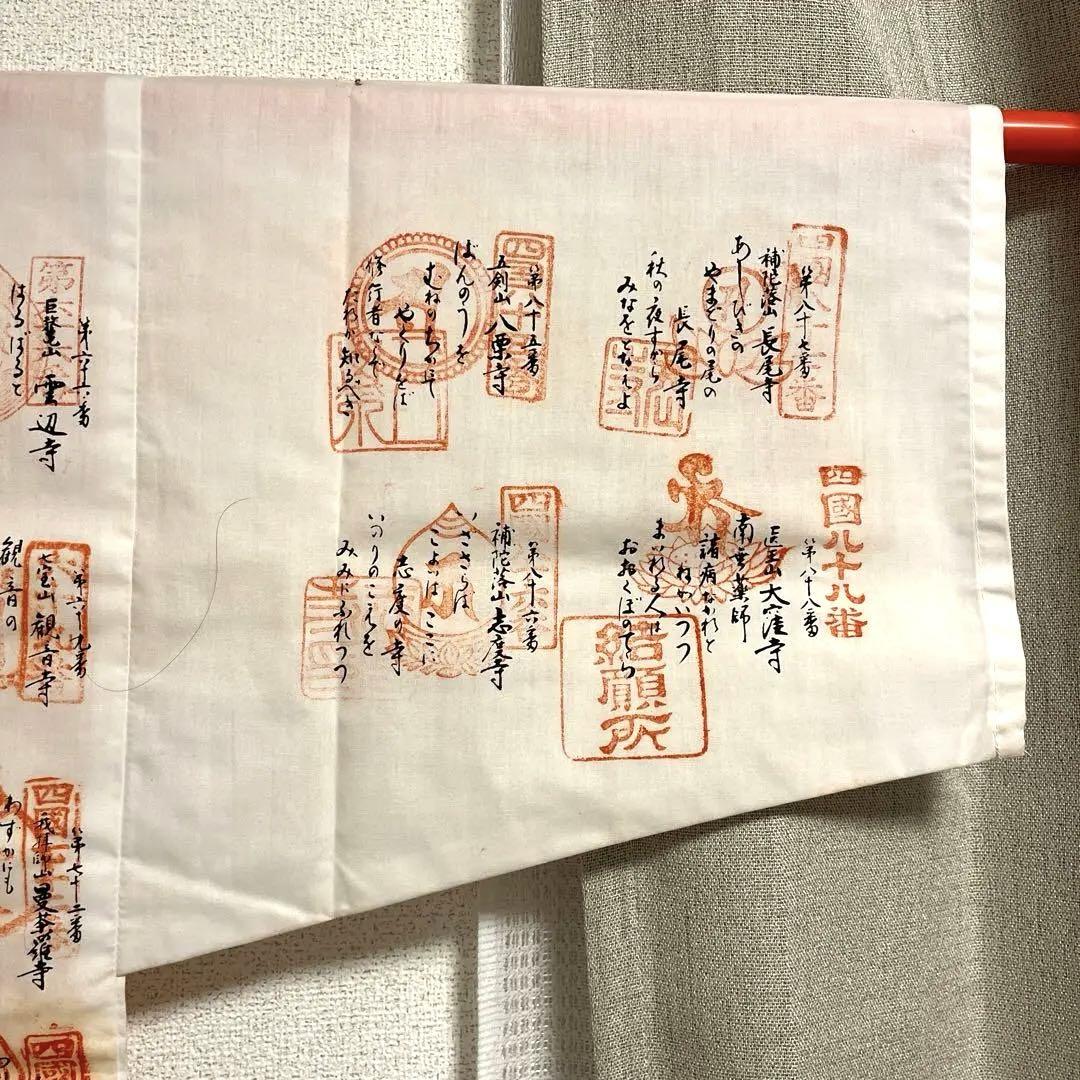 四國八十七番
第八十七番
補陀落山 長尾寺
あしびきの
やまどりの尾の
長尾寺
秋の夜すがら
みなをとなえよ
四國八十八番
第八十八番
医王山 大窪寺
南無薬師
諸病なかれと
ねがいつつ
まいれる人は
おおくぼのてら
結願所
第八十五番
五剣山 八栗寺
ぼんのうを
むねのちかにて
やくりをば
修行者ならで
たれか知るべき
第八十六番
補陀落山 志度寺
いざさらば
こよいはここに
志度の寺
いのりのこえを
みみにふれつつ
第六十六番
巨鼇山 雲辺寺
はるばると
第六十九番
七宝山 観音寺
観音の
第七十二番
我拝師山 曼荼羅寺
わずかにも